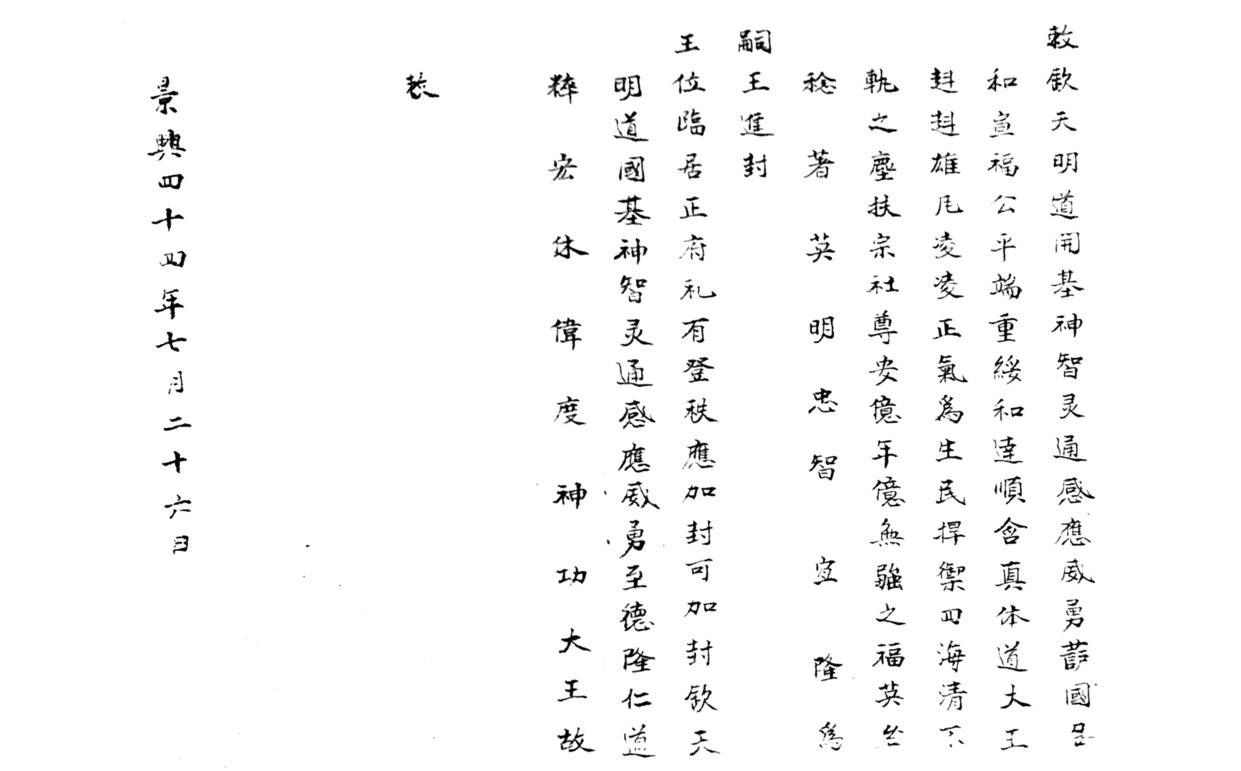 敕欽天明道開基神智灵通感應威勇蔀國
和宣福公平端重綏和達順含真体道大王
赳赳雄凡凌凌正氣為生民捍禦四海清不
軌之塵扶宗社尊安億年億無疆之福英
稔著英明忠智宜隆為
嗣王進封
王位臨居正府礼有登秩應加封可加封欽天
明道國基神智灵通感應威勇至德隆仁道
粹宏休偉度神功大王故
敕
景興四十四年七月二十六日